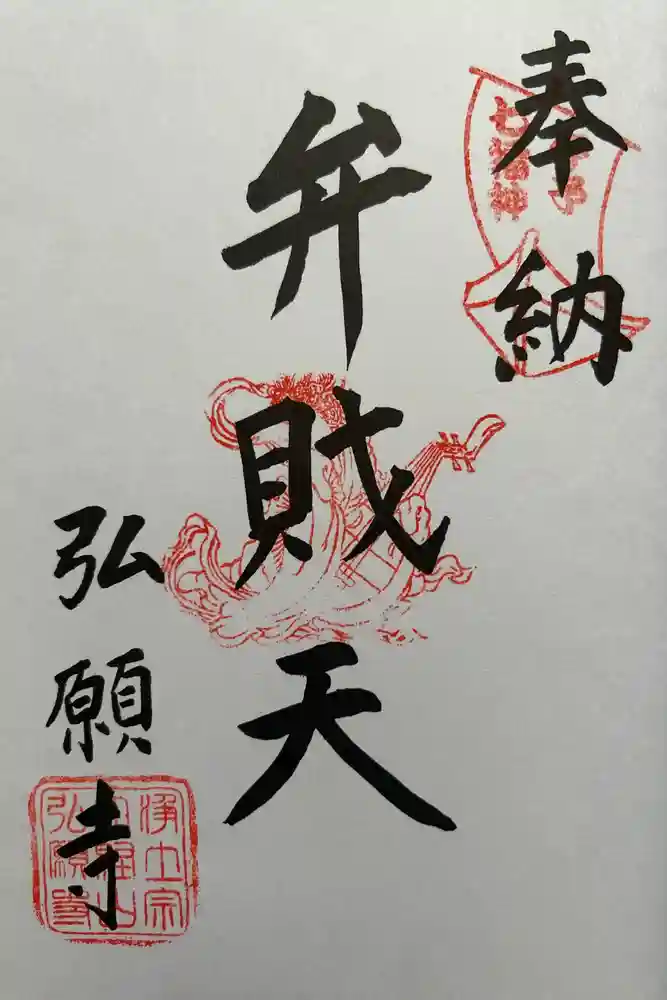 奉納
七福神
弁財天
弘願寺
浄土宗
弘願寺